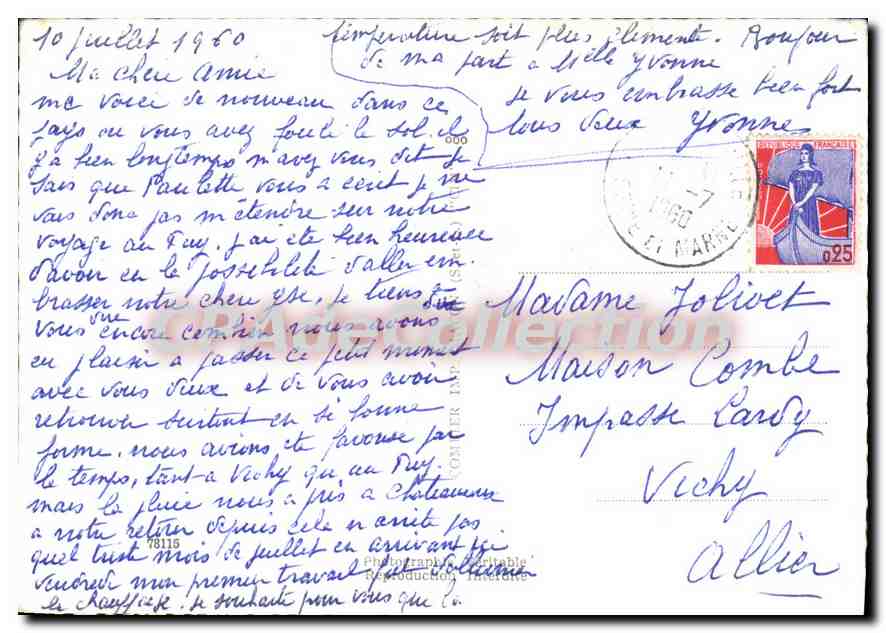 10 juillet 1960
Ma chère Amie
me voici de nouveau dans ce
pays ou vous avez foulé le sol. il
y a bien longtemps m'avez vous dit je
sais que Paulette vous a écrit je ne
vais donc pas m'étendre sur notre
voyage au Puy, j'ai été bien heureuse
d'avoir eu la possibilité d'aller em
brasser notre chère je tiens à
vous dire encore combien nous avons
eu plaisir a passer ce petit moment
avec vous deux et de vous avoir
retrouver surtout en si bonne
forme. nous avions été favorisé par
le temps, tant a Vichy qu'au Puy.
mais la pluie nous a pris a Chateauroux
a notre retour depuis cela n'arrête pas
quel triste mois de juillet en arrivant ici
vendredi mon premier travail fut d'allumer
le chauffage. je souhaite pour vous que la
température soit plus clémente. Bonjour
de ma part a Melle Yvonne
je vous embrasse bien fort
tous deux Yvonne
000
REPUBLIQUE FRANÇAISE
0,25
-7
1960
ET MARNE
Madame Jolivet
Maison Combe
Impasse Lardy
Vichy
Allier
COMBIER IMP.
CPA de Collection
78115
Photographie Véritable
Reproduction Interdite